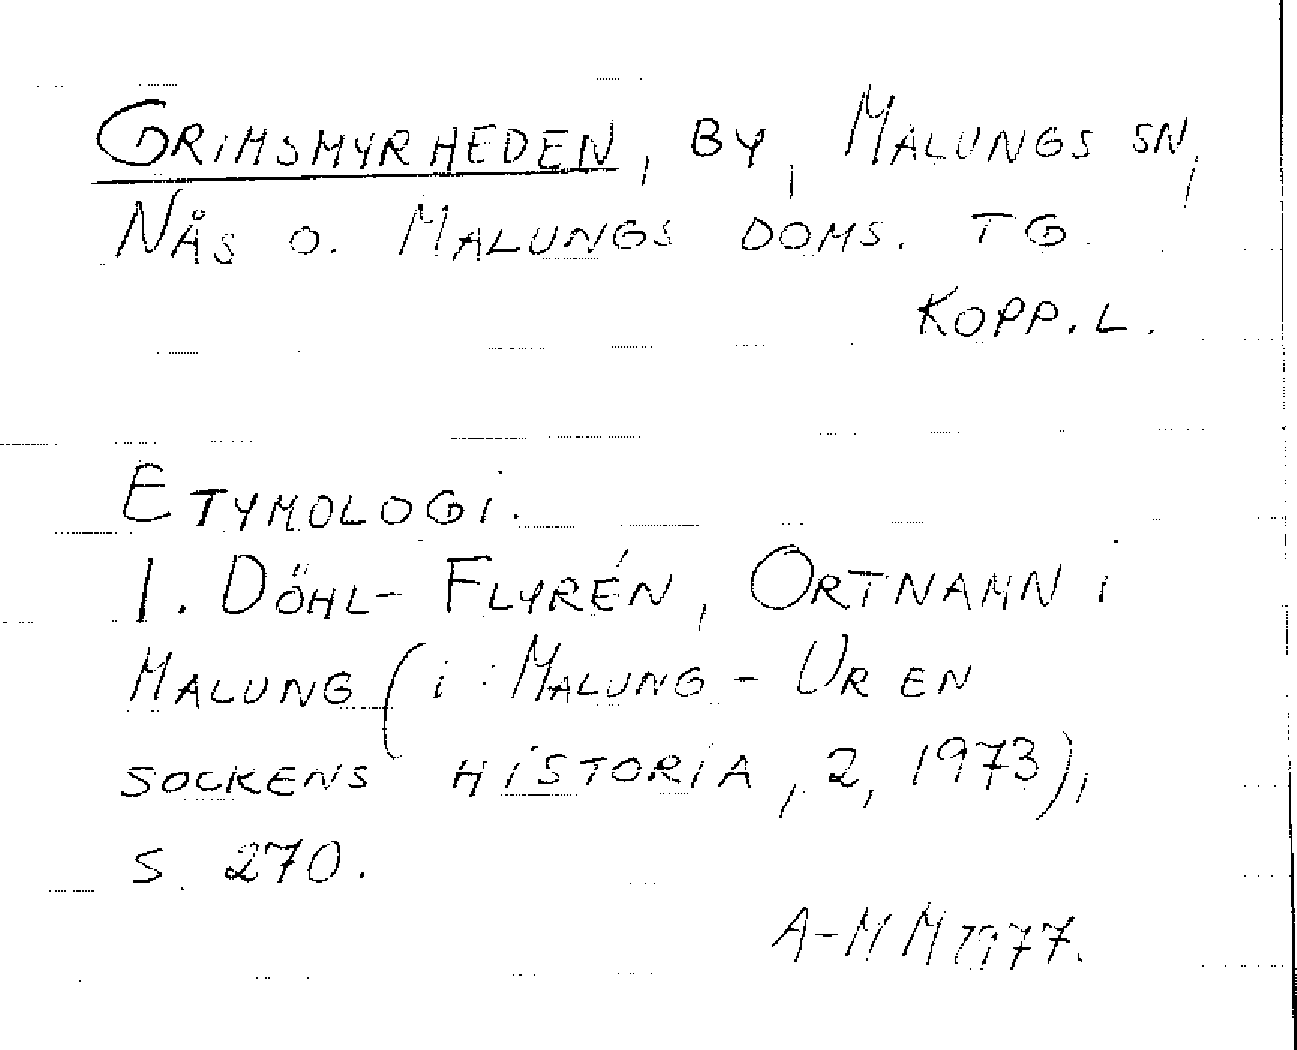 GRIMSMYRHEDEN, BY, MALUNGS SN,
NÅS O. MALUNGS DOMS. TG.
KOPP. L.
ETYMOLOGI.
I. DÖHL-FLYRÉN, ORTNAMN I
MALUNG (i: MALUNG - UR EN
SOCKENS HISTORIA, 2, 1973),
S. 270.
A-M M 1977.